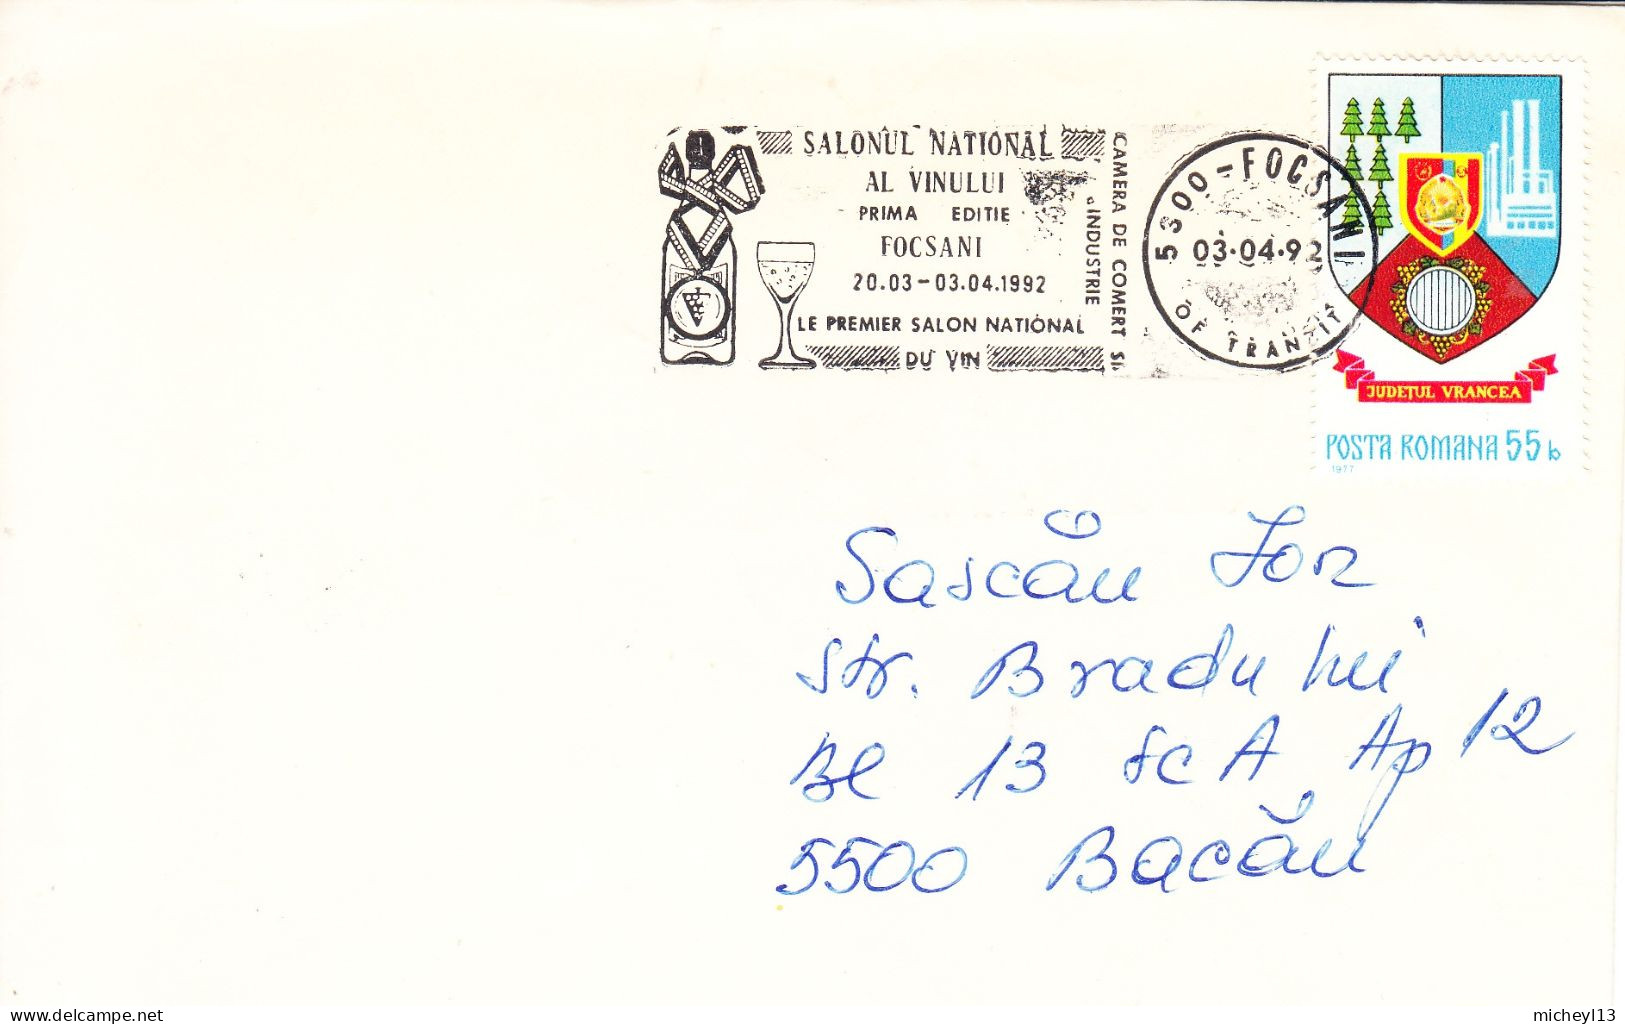 SALONUL NATIONAL
AL VINULUI
PRIMA EDITIE
FOCSANI
20.03-03.04.1992
LE PREMIER SALON NATIONAL
DU VIN
CAMERA DE COMERT SI
INDUSTRIE
5300-FOCSANI
03.04.92
OF TRANZIT
JUDEȚUL VRANCEA
POSTA ROMANA 55 b
1977
Sascău Ion
str. Bradului
Bl 13 Sc A Ap 12
5500 Bacău
micheyl13